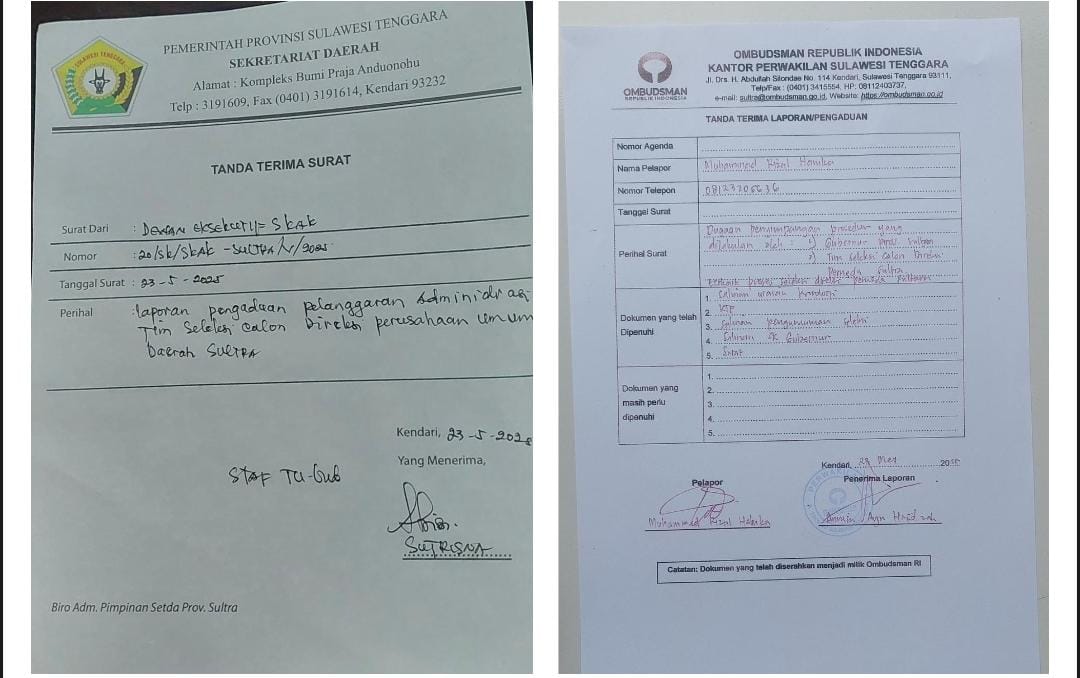 SULAWESI TENGGARA
PEMERINTAH PROVINSI SULAWESI TENGGARA
SEKRETARIAT DAERAH
Alamat : Kompleks Bumi Praja Anduonohu
Telp : 3191609, Fax (0401) 3191614, Kendari 93232
TANDA TERIMA SURAT
Surat Dari : DEWAN EKSEKUTIF SKAK
Nomor : 20/SK/SKAK-SULTRA/V/2025
Tanggal Surat : 23-5-2025
Perihal : laporan pengaduan pelanggaran Administrasi
Tim Seleksi calon Direksi perusahaan umum
Daerah SULTRA
Kendari, 23-5-2025
Yang Menerima,
STAF TU-Gub
SUTRISNA
Biro Adm. Pimpinan Setda Prov. Sultra
OMBUDSMAN
REPUBLIK INDONESIA
OMBUDSMAN REPUBLIK INDONESIA
KANTOR PERWAKILAN SULAWESI TENGGARA
Jl. Drs. H. Abdullah Silondae No. 114 Kendari, Sulawesi Tenggara 93111,
Telp/Fax : (0401) 3415554, HP: 08112403737,
e-mail: sultra@ombudsman.go.id, Website: https://ombudsman.go.id
TANDA TERIMA LAPORAN/PENGADUAN
Nomor Agenda
Nama Pelapor Muhammad Rizal Hamka
Nomor Telepon
Tanggal Surat
Perihal Surat Dugaan penyimpangan prosedur yang
dilakukan oleh : 1) Gubernur Prov. Sultra
2) Tim Seleksi Calon Direksi
Perumda Sultra
proses seleksi direksi perumda
Dokumen yang telah Dipenuhi
1.
2. KTP
3. Salinan pengumuman seleksi
4. Salinan SK Gubernur
5. Surat
Dokumen yang masih perlu dipenuhi
1.
2.
3.
4.
5.
Kendari, 23 Mei 2025
Pelapor Penerima Laporan
Muhammad Rizal Hamka
Catatan: Dokumen yang telah diserahkan menjadi milik Ombudsman RI